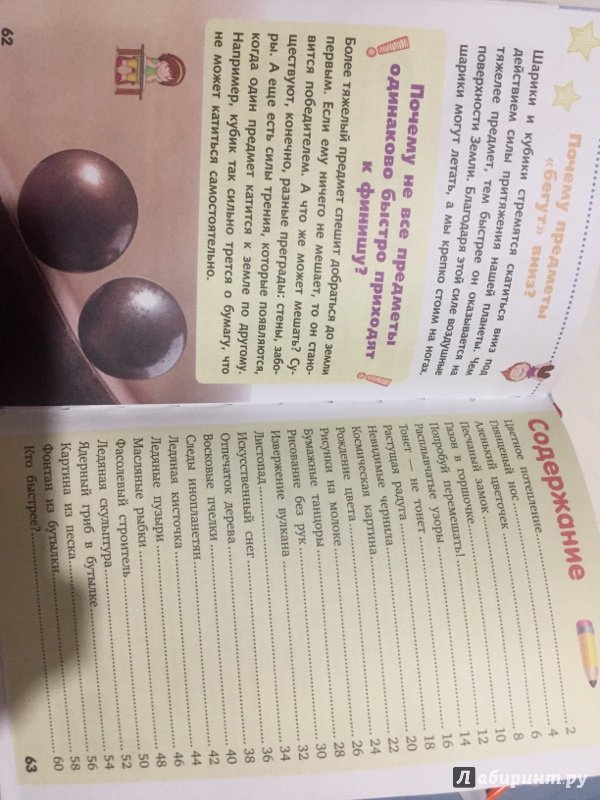 Почему предметы
«бегут» вниз?
Шарики и кубики стремятся скатиться вниз под
действием силы притяжения нашей планеты. Чем
тяжелее предмет, тем быстрее он оказывается на
поверхности Земли. Благодаря этой силе воздушные
шарики могут летать, а мы крепко стоим на ногах.
Почему не все предметы
одинаково быстро приходят
к финишу?
Более тяжелый предмет спешит добраться до земли
первым. Если ему ничего не мешает, то он стано-
вится победителем. А что же может мешать? Су-
ществуют, конечно, разные преграды: стены, забо-
ры. А еще есть силы трения, которые появляются,
когда один предмет катится к земле по другому.
Например, кубик так сильно трется о бумагу, что
не может катиться самостоятельно.
62
Содержание
Цветное потепление 2
Глянцевый нос 4
Аленький цветочек 6
Песчаный замок 8
Газон в горшочке 10
Попробуй перемешать! 12
Расплывчатые узоры 14
Тонет — не тонет 16
Растущая радуга 18
Невидимые чернила 20
Космическая картина 22
Рождение цвета 24
Рисунки на молоке 26
Бумажные танцоры 28
Рисование без рук 30
Извержение вулкана 32
Листопад 34
Искусственный снег 36
Отпечаток дерева 38
Восковые пчелки 40
Следы инопланетян 42
Ледяная кисточка 44
Ледяные пузыри 46
Масляные рыбки 48
Фасолевый строитель 50
Ледяная скульптура 52
Ядерный гриб в бутылке 54
Картина из песка 56
Фонтан из бутылки 58
Кто быстрее? 60
63
Лабиринт.ру